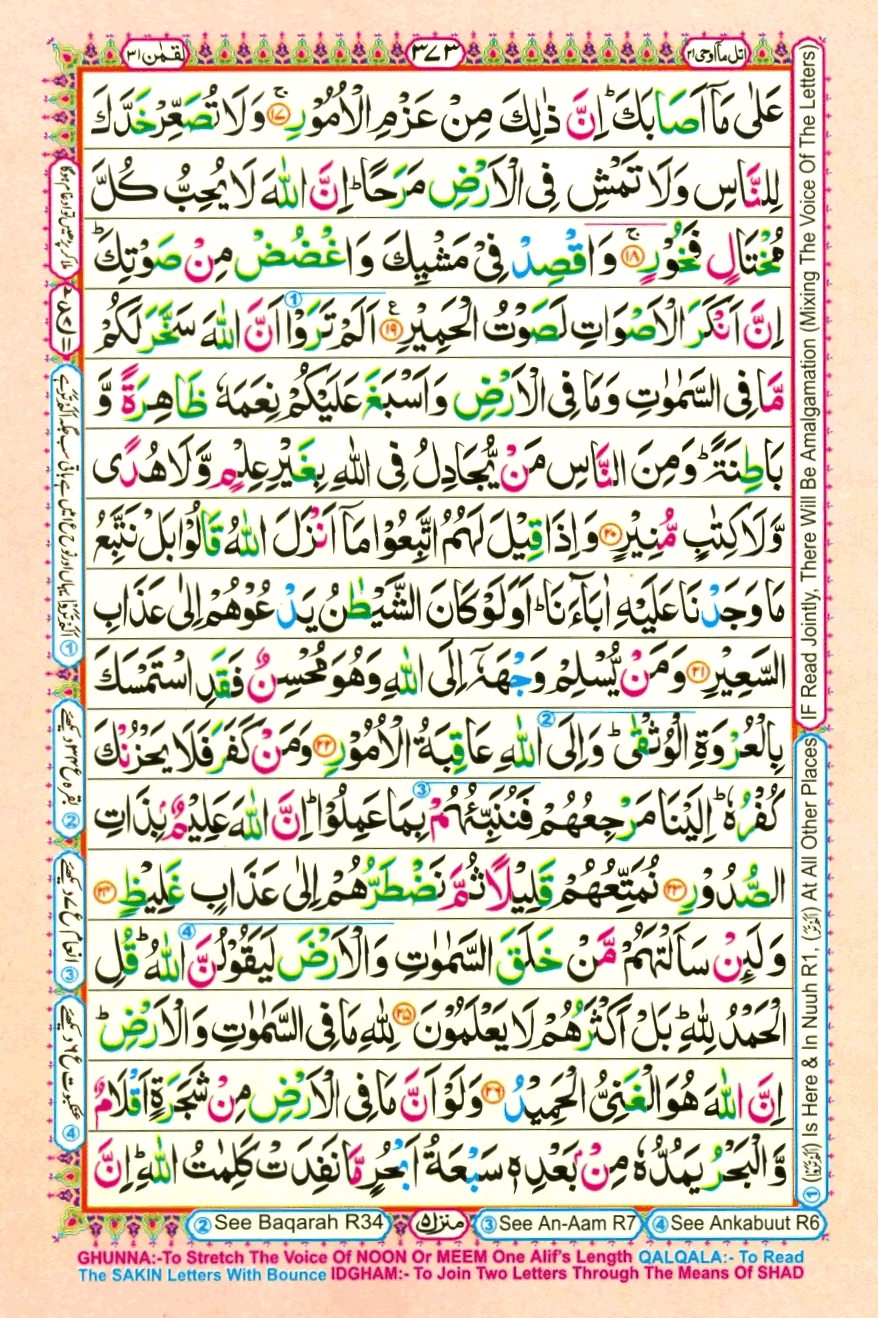 لقمٰن ٣١
٣٧٣
اتل مآ اوحی ٢١
عَلٰى مَاۤ اَصَابَكَؕ اِنَّ ذٰلِكَ مِنْ عَزْمِ الْاُمُوْرِۚ ۱۷ وَلَا تُصَعِّرْ خَدَّكَ
لِلنَّاسِ وَلَا تَمْشِ فِى الْاَرْضِ مَرَحًاؕ اِنَّ اللّٰهَ لَا يُحِبُّ كُلَّ
مُخْتَالٍ فَخُوْرٍۚ ۱۸ وَاقْصِدْ فِىْ مَشْيِكَ وَاغْضُضْ مِنْ صَوْتِكَؕ
اِنَّ اَنْكَرَ الْاَصْوَاتِ لَصَوْتُ الْحَمِيْرِ ع ۱۹ اَلَمْ تَرَوْا اَنَّ اللّٰهَ سَخَّرَ لَكُمْ
مَّا فِى السَّمٰوٰتِ وَمَا فِى الْاَرْضِ وَاَسْبَغَ عَلَيْكُمْ نِعَمَهٗ ظَاهِرَةً وَّ
بَاطِنَةًؕ وَمِنَ النَّاسِ مَنْ يُّجَادِلُ فِى اللّٰهِ بِغَيْرِ عِلْمٍ وَّلَا هُدًى
وَّلَا كِتٰبٍ مُّنِيْرٍ ۲۰ وَاِذَا قِيْلَ لَهُمُ اتَّبِعُوْا مَاۤ اَنْزَلَ اللّٰهُ قَالُوْا بَلْ نَتَّبِعُ
مَا وَجَدْنَا عَلَيْهِ اٰبَآءَنَاؕ اَوَلَوْ كَانَ الشَّيْطٰنُ يَدْعُوْهُمْ اِلٰى عَذَابِ
السَّعِيْرِ ۲۱ وَمَنْ يُّسْلِمْ وَجْهَهٗۤ اِلَى اللّٰهِ وَهُوَ مُحْسِنٌ فَقَدِ اسْتَمْسَكَ
بِالْعُرْوَةِ الْوُثْقٰىؕ وَاِلَى اللّٰهِ عَاقِبَةُ الْاُمُوْرِ ۲۲ وَمَنْ كَفَرَ فَلَا يَحْزُنْكَ
كُفْرُهٗؕ اِلَيْنَا مَرْجِعُهُمْ فَنُنَبِّئُهُمْ بِمَا عَمِلُوْاؕ اِنَّ اللّٰهَ عَلِيْمٌۢ بِذَاتِ
الصُّدُوْرِ ۲۳ نُمَتِّعُهُمْ قَلِيْلًا ثُمَّ نَضْطَرُّهُمْ اِلٰى عَذَابٍ غَلِيْظٍ ۲۴
وَلَئِنْ سَاَلْتَهُمْ مَّنْ خَلَقَ السَّمٰوٰتِ وَالْاَرْضَ لَيَقُوْلُنَّ اللّٰهُؕ قُلِ
الْحَمْدُ لِلّٰهِؕ بَلْ اَكْثَرُهُمْ لَا يَعْلَمُوْنَ ۲۵ لِلّٰهِ مَا فِى السَّمٰوٰتِ وَالْاَرْضِؕ
اِنَّ اللّٰهَ هُوَ الْغَنِىُّ الْحَمِيْدُ ۲۶ وَلَوْ اَنَّ مَا فِى الْاَرْضِ مِنْ شَجَرَةٍ اَقْلَامٌ
وَّالْبَحْرُ يَمُدُّهٗ مِنْۢ بَعْدِهٖ سَبْعَةُ اَبْحُرٍ مَّا نَفِدَتْ كَلِمٰتُ اللّٰهِؕ اِنَّ
IF Read Jointly, There Will Be Amalgamation (Mixing The Voice Of The Letters)
① (اَلَمْ تَرَوْا) Is Here & In Nuuh R1, (اَلَمْ تَرَ) At All Other Places
② See Baqarah R34
منزل ٥
③ See An-Aam R7
④ See Ankabuut R6
GHUNNA:-To Stretch The Voice Of NOON Or MEEM One Alif's Length QALQALA:- To Read
The SAKIN Letters With Bounce IDGHAM:- To Join Two Letters Through The Means Of SHAD